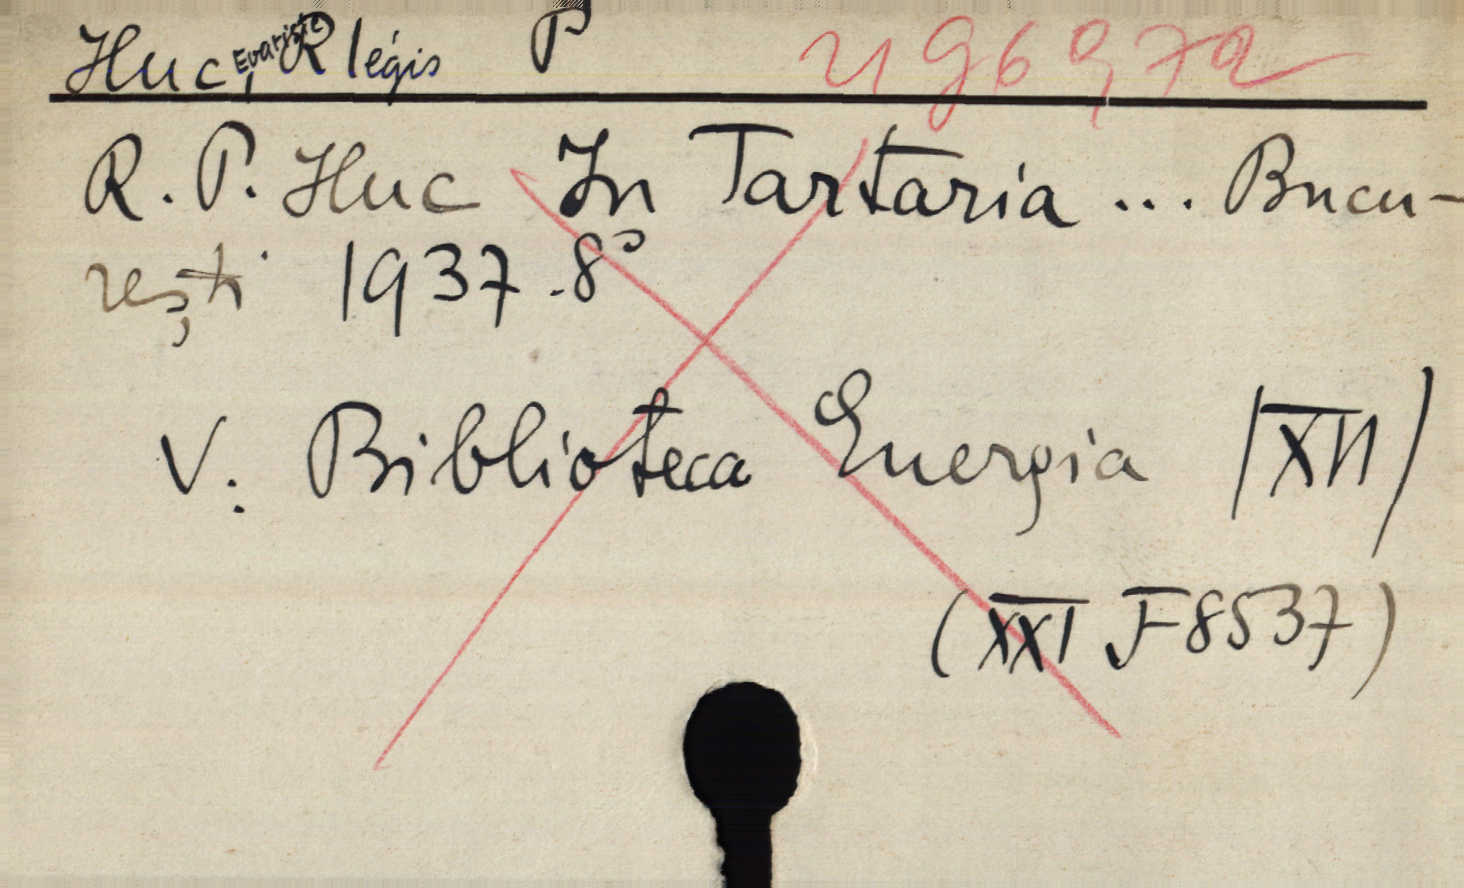 Huc, Evariste Régis P
R. P. Huc In Tartaria ... Bucu-
rești 1937. 8°
V. Biblioteca Energia |XII|
(XXI F 8537)